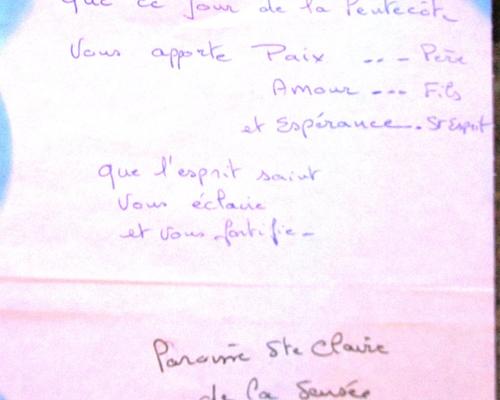 que ce jour de la Pentecôte
Vous apporte Paix .. - Père
Amour --- Fils
et Espérance. St Esprit
que l'esprit saint
Vous éclaire
et vous fortifie -
Paroisse Ste Claire
de la Sensée